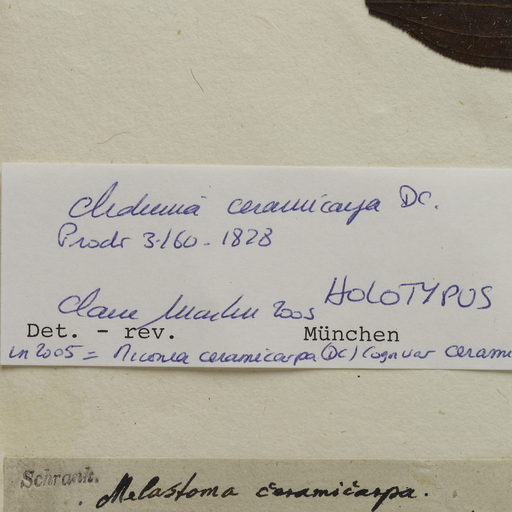 Clidemia ceramicarpa DC.
Prodr 3.160 - 1828
HOLOTYPUS
2005
Det. - rev. München
in 2005 = Miconia ceramicarpa (DC) Cogn var cerami
Schrank.
Melastoma ceramicarpa.